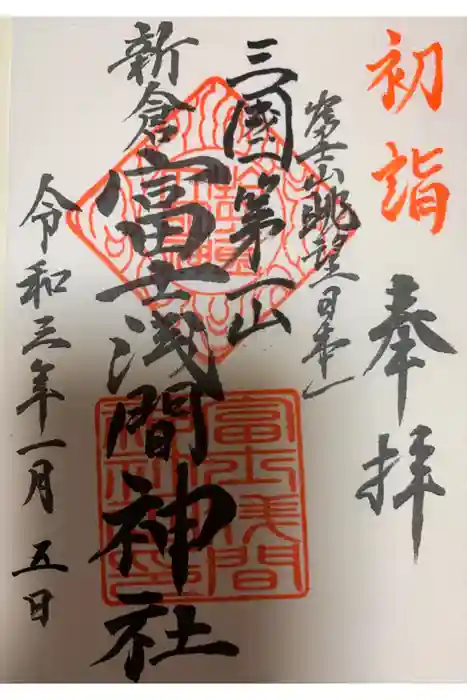 初詣
奉拝
富士山眺望日本一
三國第一山
新倉富士浅間神社
令和三年一月五日
富士浅間
神社